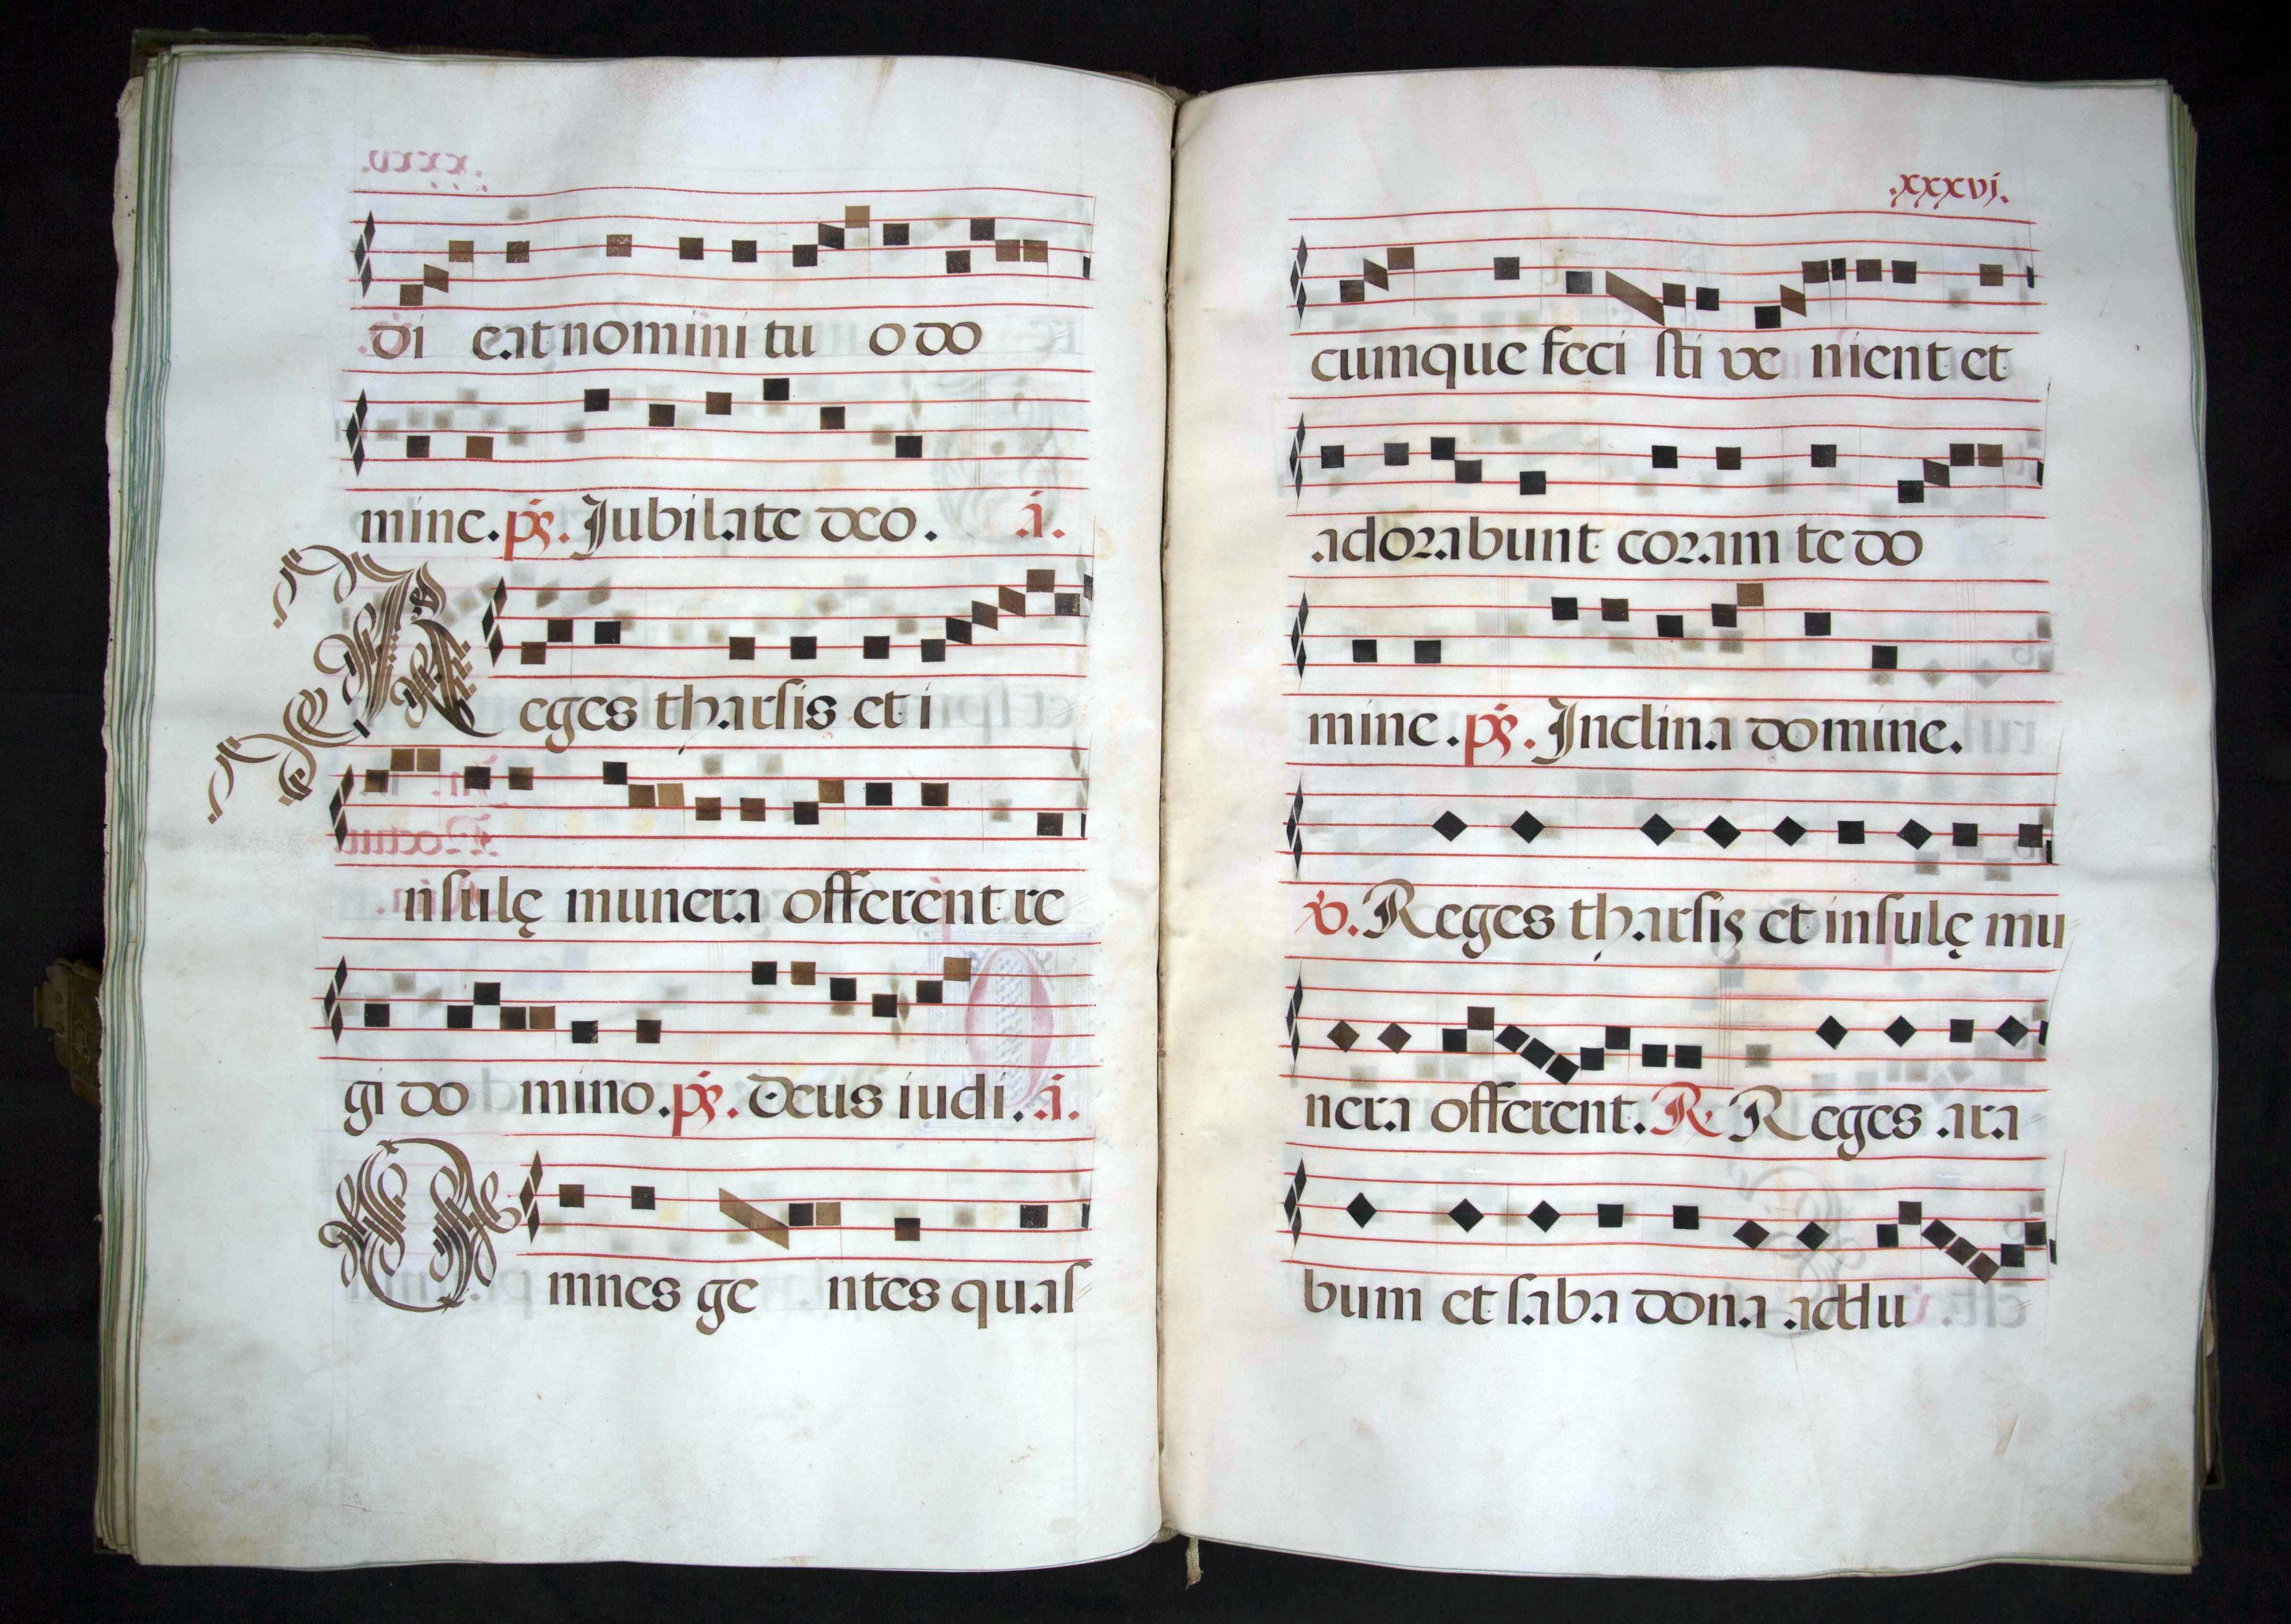 di cat nomini tu o do
mine. ps. Jubilate deo. a.
Reges tharsis et i
nsulę munera offerent re
gi do mino. ps. Deus iudi. a.
Omnes ge ntes quas
.xxxvj.
cumque feci sti ve nient et
adorabunt coram te do
mine. ps. Inclina domine.
V. Reges tharsis et insulę mu
nera offerent. R. Reges ara
bum et saba dona addu